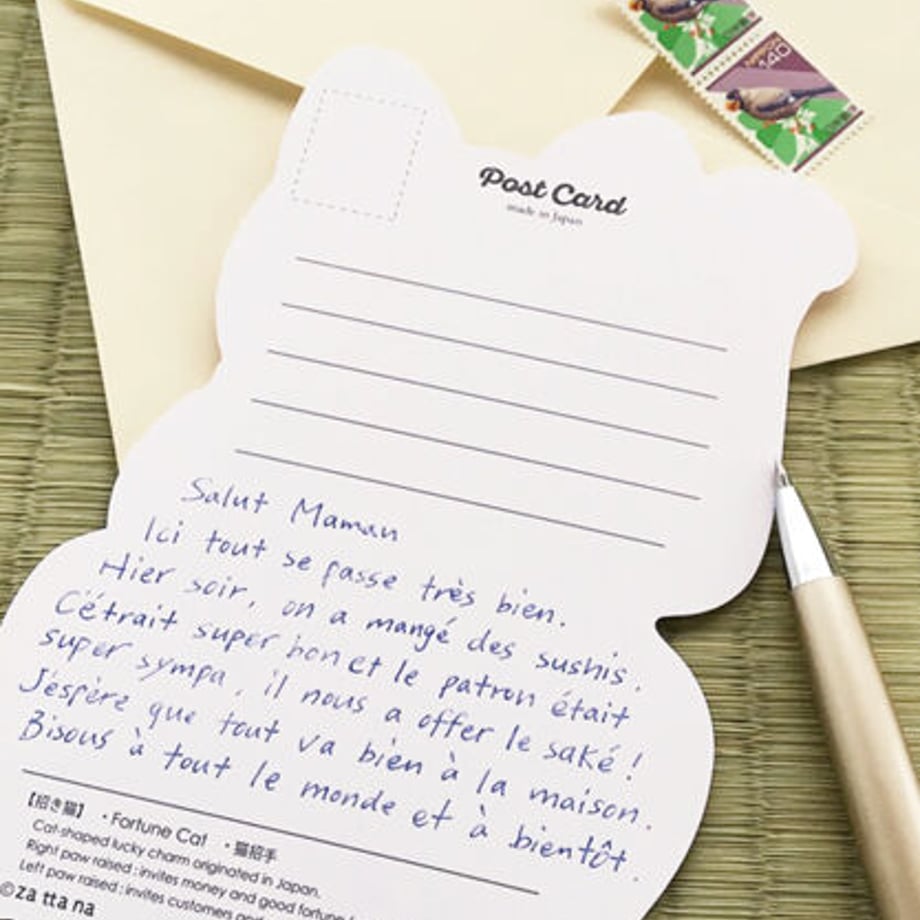 NIPPON 140
Post Card
made in Japan
Salut Maman
Ici tout se passe très bien.
Hier soir, on a mangé des sushis.
C'étrait super bon et le patron était
super sympa, il nous a offer le saké !
J'éspère que tout va bien à la maison.
Bisous à tout le monde et à bientôt.
【招き猫】 ・Fortune Cat ・猫招手
Cat-shaped lucky charm originated in Japan.
Right paw raised : invites money and good fortune
Left paw raised : invites customers and
©za tta na